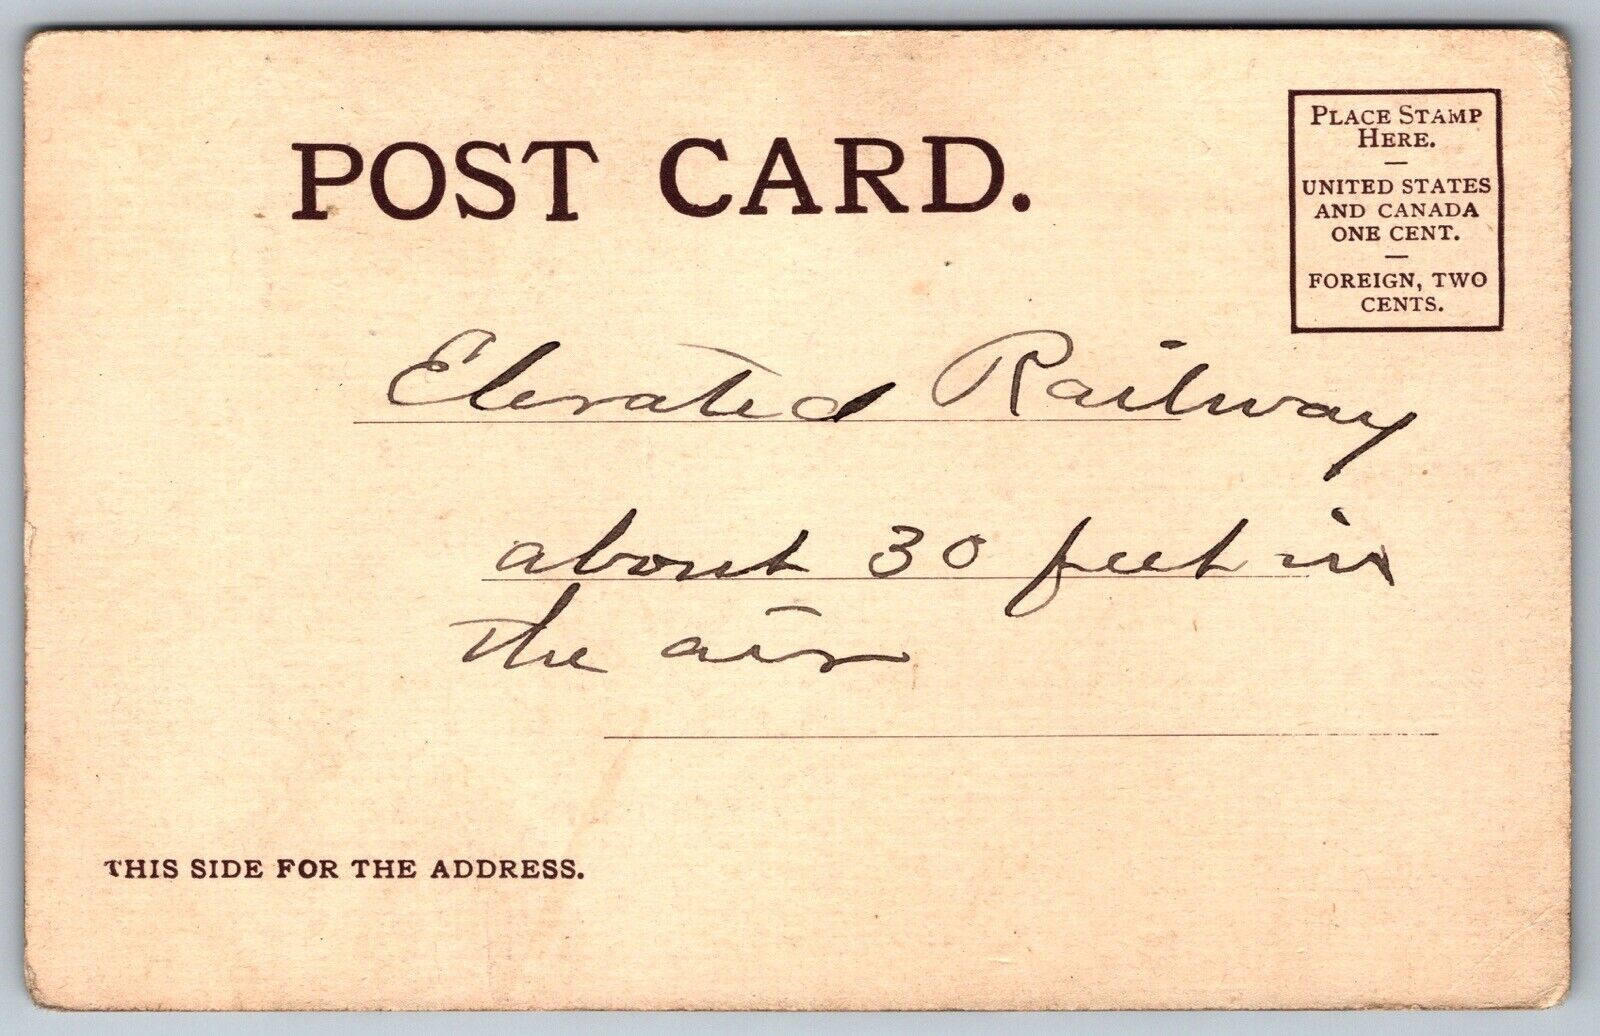 POST CARD.
PLACE STAMP
HERE.
—
UNITED STATES
AND CANADA
ONE CENT.
—
FOREIGN, TWO
CENTS.
Elevated Railway
about 30 feet in
the air
THIS SIDE FOR THE ADDRESS.